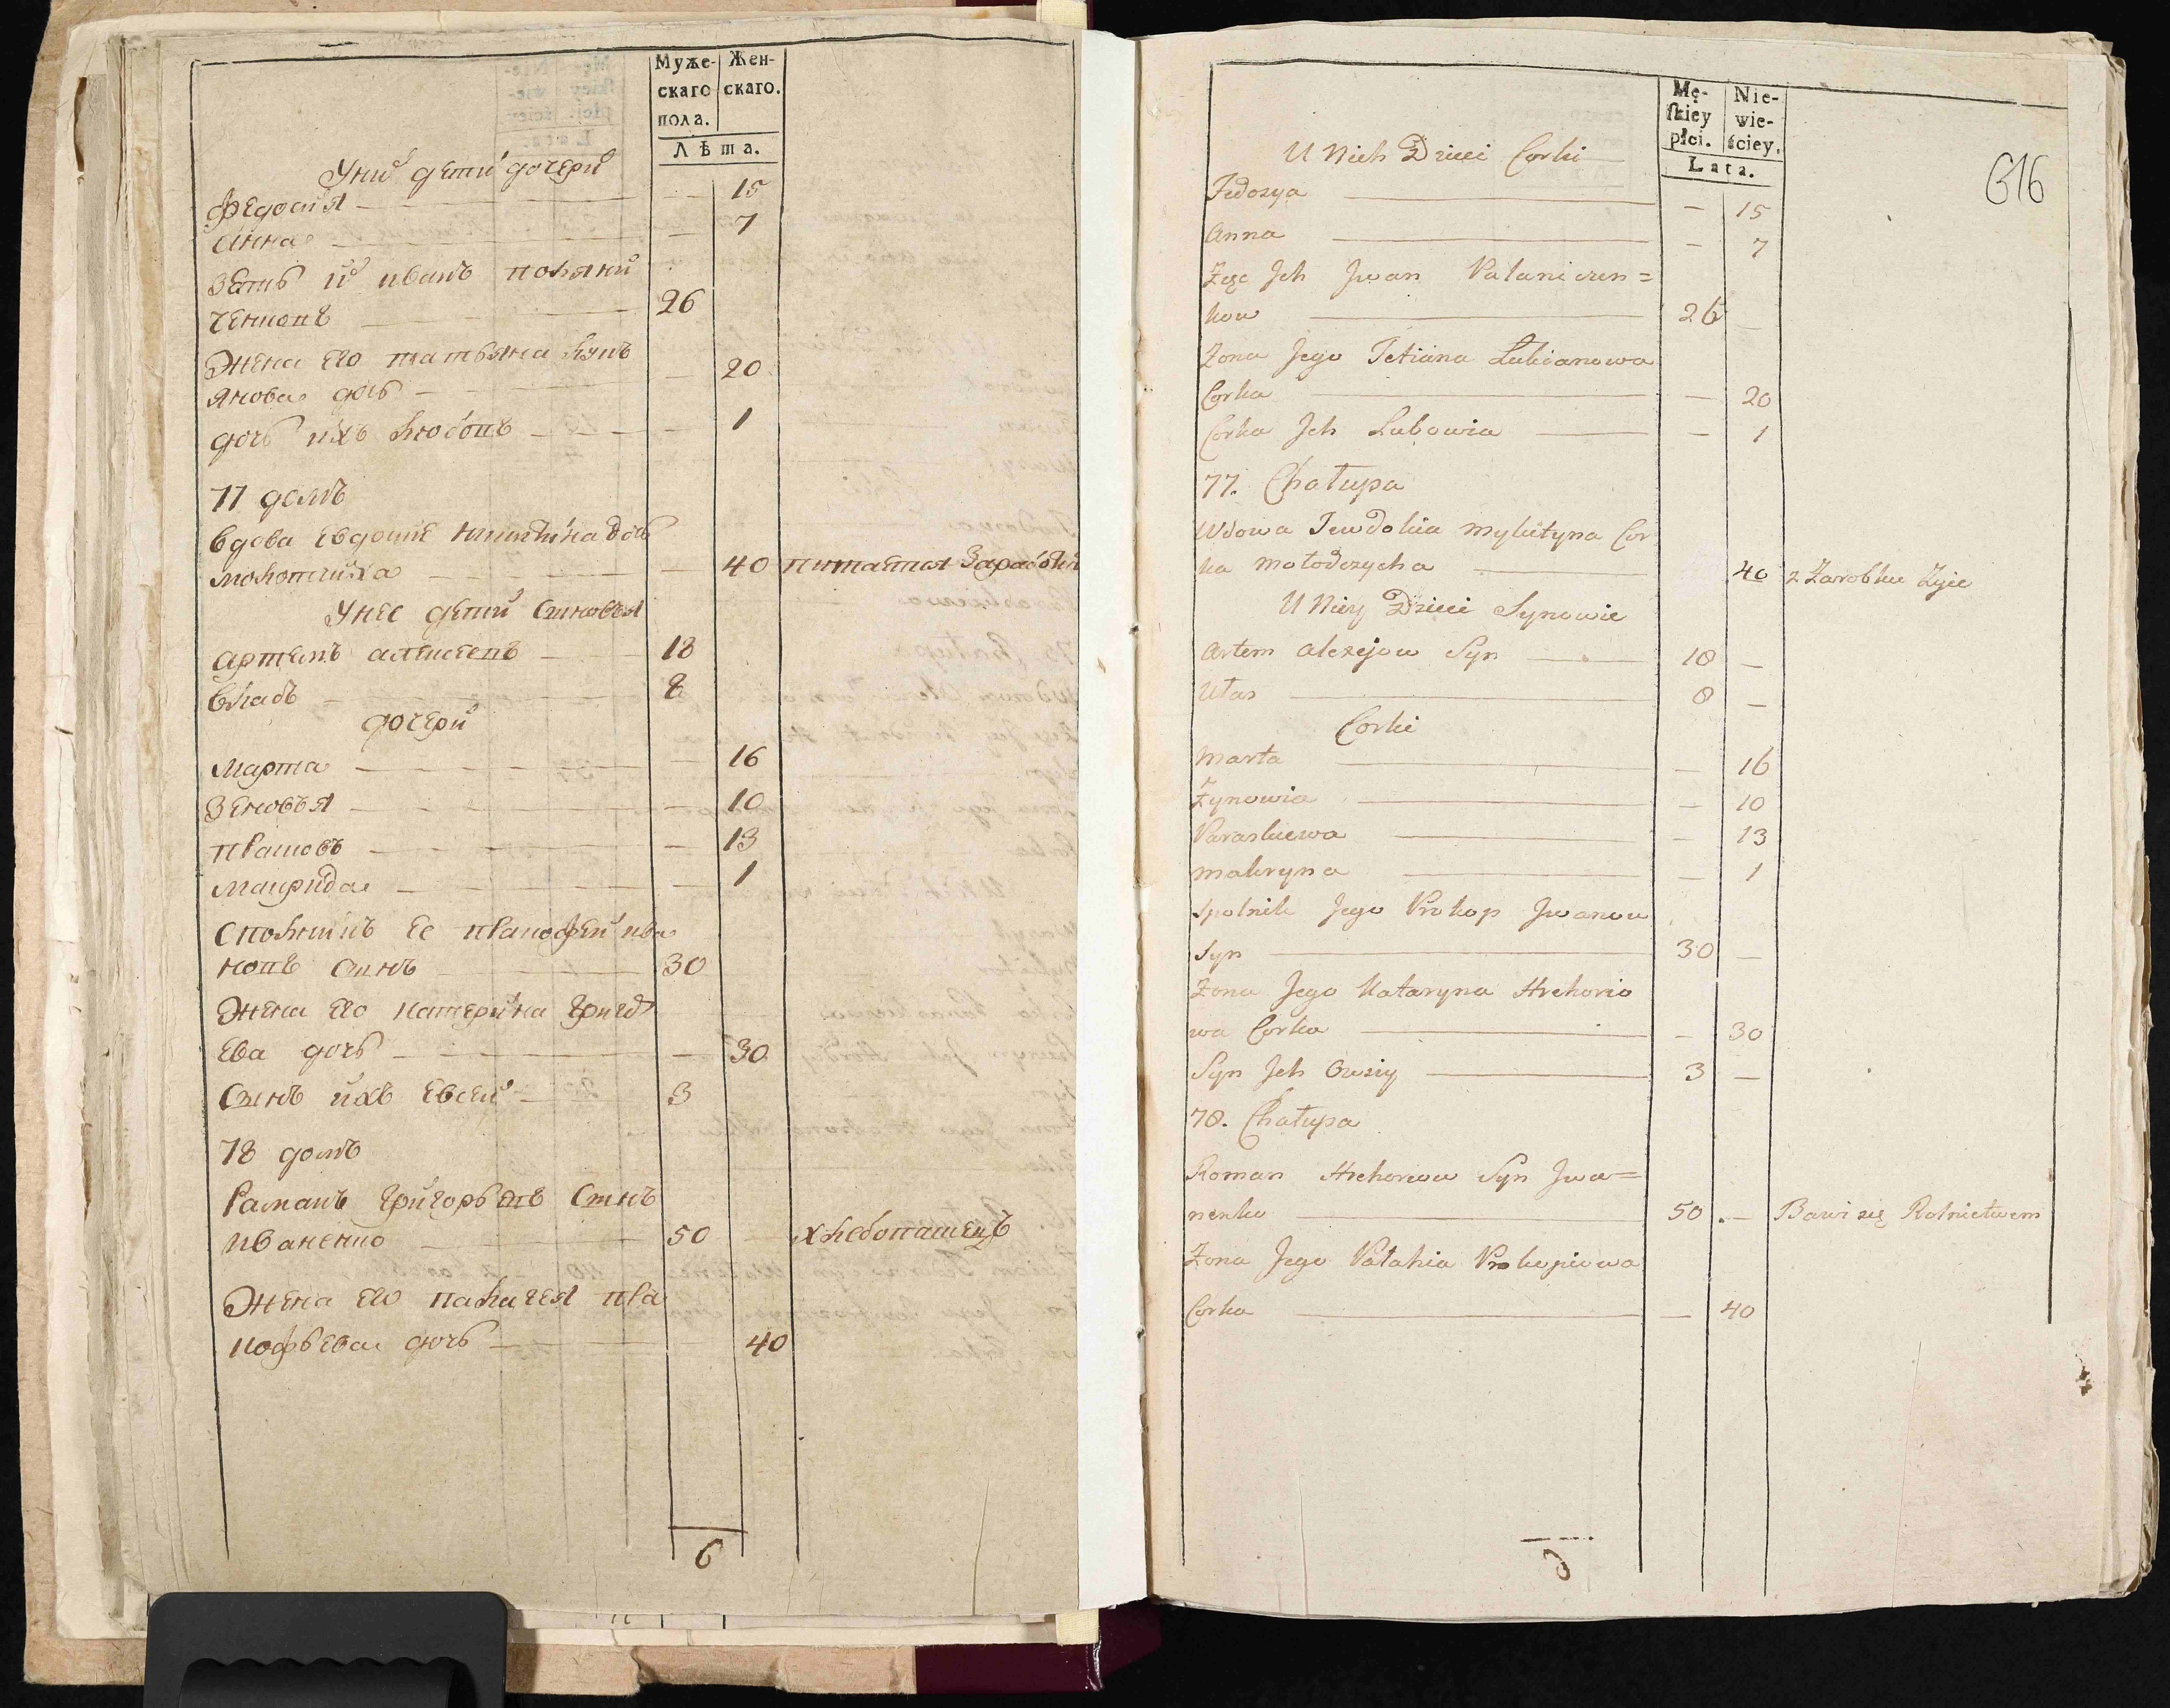 Муже- Жен-
скаго скаго.
пола.
Лѣта.
Унихъ дети дочери
Федосия 15
Анна 7
Зять ихъ иванъ полани
ченковъ 26
Жена Его татьяна лукъ
янова дочь 20
дочь ихъ любовъ 1
77 домъ
вдова Евдокия никитина дочь
молотчиха 40 питается Заработк
Унее дети Сыновья
артемъ алексеевъ 18
власъ 8
дочери
марта 16
Зеновья 10
прасковь 13
макрида 1
сполникъ Ее пракофей ива
новъ сынъ 30
Жена Его катерина григо
ева дочь 30
Сынъ ихъ Евсей 3
78 домъ
Раманъ григорьевъ Сынъ
иваненко 50 хлебопашецъ
Жена Его палагея пра
кофьева дочь 40
6
Mę- Nie-
ſkiey wie-
płci. ściey.
Lata.
616
U Nich Dzieci Corki
Fedosya 15
Anna 7
Zięć Jch Jwan Palaniczen=
kow 26
Zona Jego Tetiana Lukianowa
Corka 20
Corka Jch Lubowia 1
77. Chałupa
Wdowa Jewdokia Mykityna Cor
ka Mołodczycha 40 z Zarobku Zyie
U Niey Dzieci Synowie
Artem Alexejow Syn 18
Ułas 8
Corki
Marta 16
Zynowia 10
Paraskiewa 13
Makryna 1
Spolnik Jego Prokop Jwanow
Syn 30
Zona Jego Kataryna Hrehorio
wa Corka 30
Syn Jch Owsiy 3
78. Chałupa
Roman Hrehorow Syn Jwa=
nenko 50 Bawi się Rolnictwem
Zona Jego Pałahia Prokopiowa
Corka 40